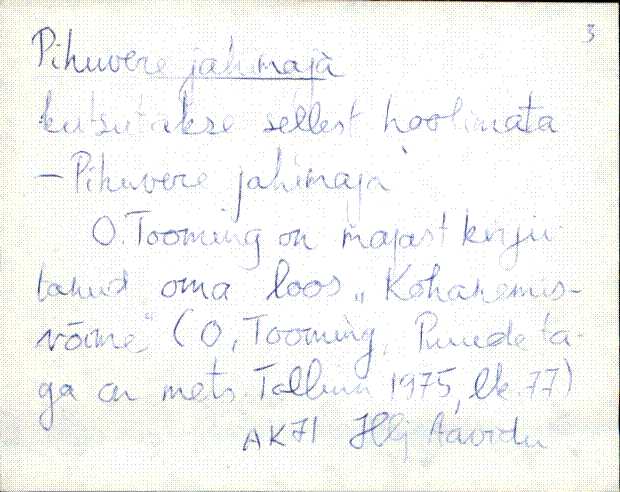 3
Pihuvere jahimaja
kutsutakse sellest hoolimata
– Pihuvere jahimaja
O. Tooming on majast kirju-
tanud oma loos „Kohanemis-
võime" (O. Tooming, Puude ta-
ga on mets. Tallinn 1975, lk. 77)
AK71 Aavidu